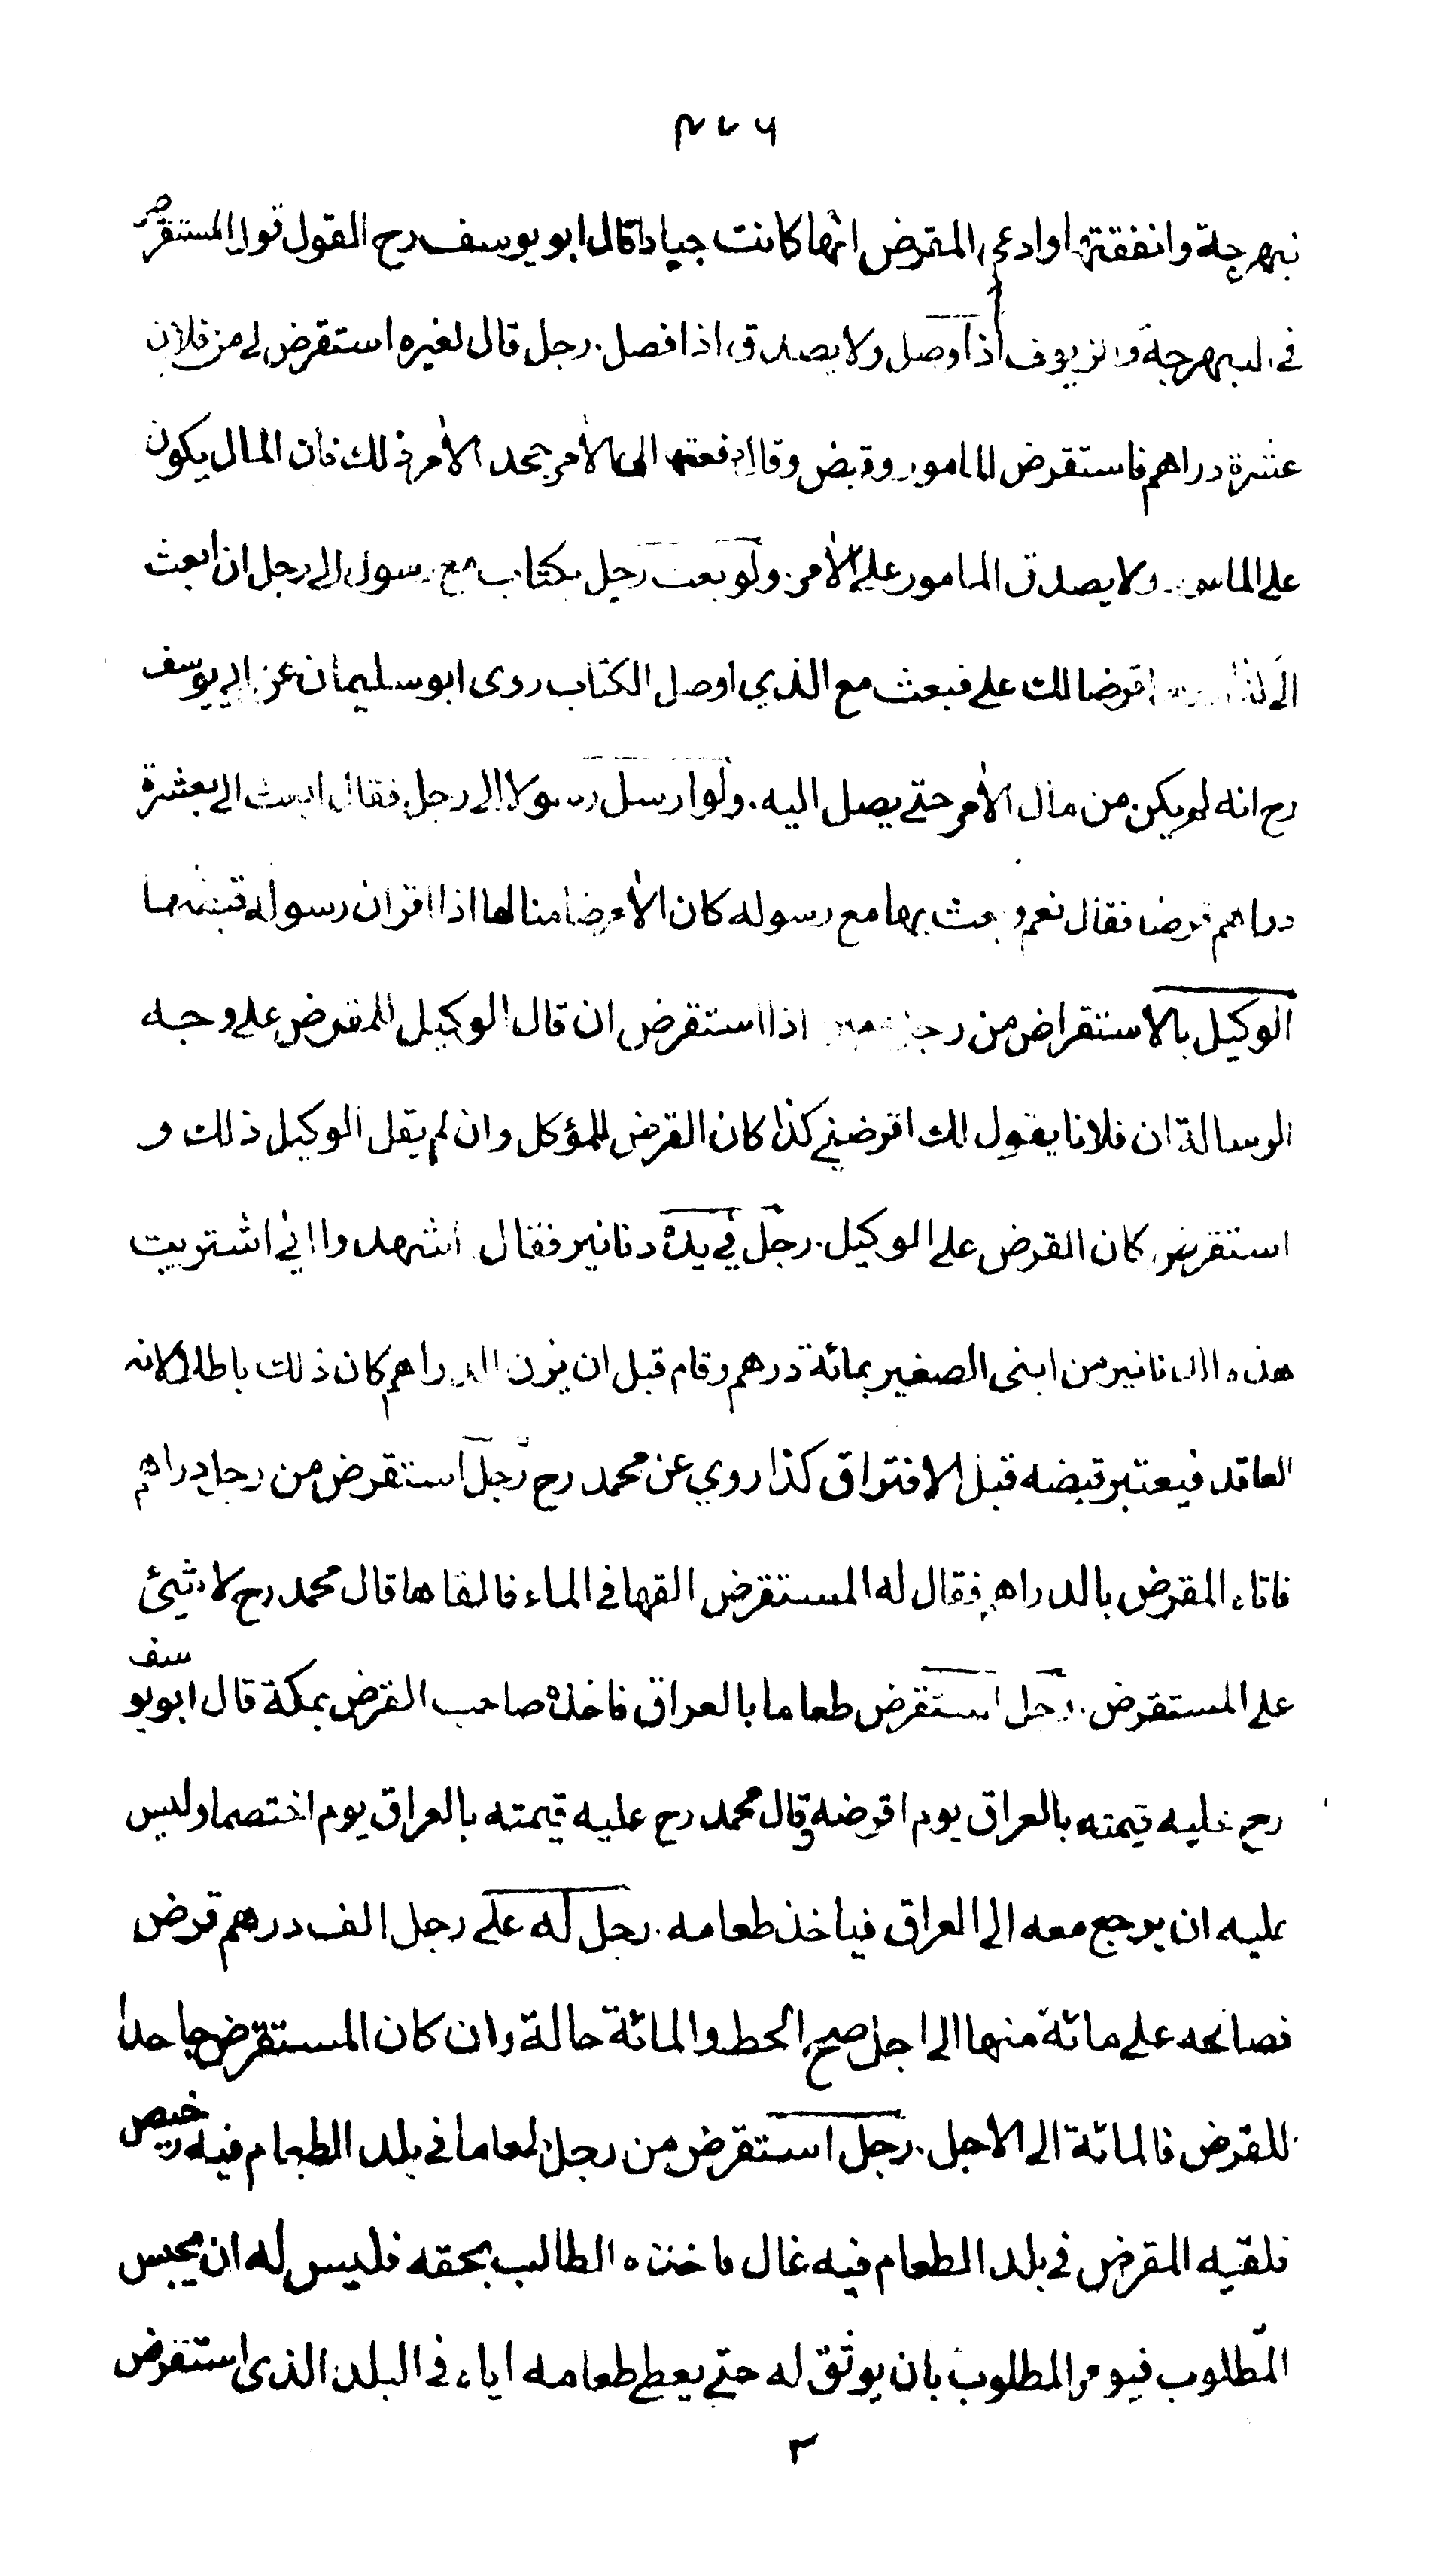 ٣٧٦
نبهرجة وانفقتها وادعى المقرض انها كانت جيادا قال ابو يوسف رح القول قول المستقرض
في النبهرجة والزيوف اذا وصل ولا يصدق اذا فصل. رجل قال لغيره استقرض لي من فلان
عشرة دراهم فاستقرض المامور وقبض وقال دفعتها الى الآمر وجحد الآمر ذلك فان المال يكون
على المامور ولا يصدق المامور على الآمر. ولو بعث رجل بكتاب مع رسول الى رجل ان ابعث
الى قرضا لك على فبعث مع الذي اوصل الكتاب روى ابو سليمان عن ابي يوسف
رح انه لم يكن من مال الآمر حتى يصل اليه. ولو ارسل رسولا الى رجل فقال ابعث الى بعشرة
دراهم قرضا فقال نعم وبعث بها مع رسوله كان الآمر ضامنا لها اذا اقر ان رسوله قبضها
الوكيل بالاستقراض من رجل اذا استقرض ان قال الوكيل للمقرض على وجه
الرسالة ان فلانا يقول لك اقرضني كذا كان القرض للمؤكل وان لم يقل الوكيل ذلك و
استقرض كان القرض على الوكيل. رجل في يده دنانير فقال اشهدوا اني اشتريت
هذه الدنانير من ابنى الصغير بمائة درهم وقام قبل ان يزن الدراهم كان ذلك باطلا لانه
العاقد فيعتبر قبضه قبل الافتراق كذا روي عن محمد رح رجل استقرض من رجل دراهم
فاتاه المقرض بالدراهم فقال له المستقرض القها في الماء فالقاها قال محمد رح لا شيئ
على المستقرض. رجل استقرض طعاما بالعراق فاخذه صاحب القرض بمكة قال ابو يوسف
رح عليه قيمته بالعراق يوم اقرضه وقال محمد رح عليه قيمته بالعراق يوم اختصما وليس
عليه ان يرجع معه الى العراق فياخذ طعامه. رجل له على رجل الف درهم قرض
فصالحه على مائة منها الى اجل صح الحط والمائة حالة وان كان المستقرض جاحدا
للقرض فالمائة الى الاجل. رجل استقرض من رجل طعاما في بلد الطعام فيه رخيص
فلقيه المقرض في بلد الطعام فيه غال فاخذه الطالب بحقه فليس له ان يحبس
المطلوب فيومر المطلوب بان يوثق له حتى يعطي طعامه اياه في البلد الذى استقرض
٣